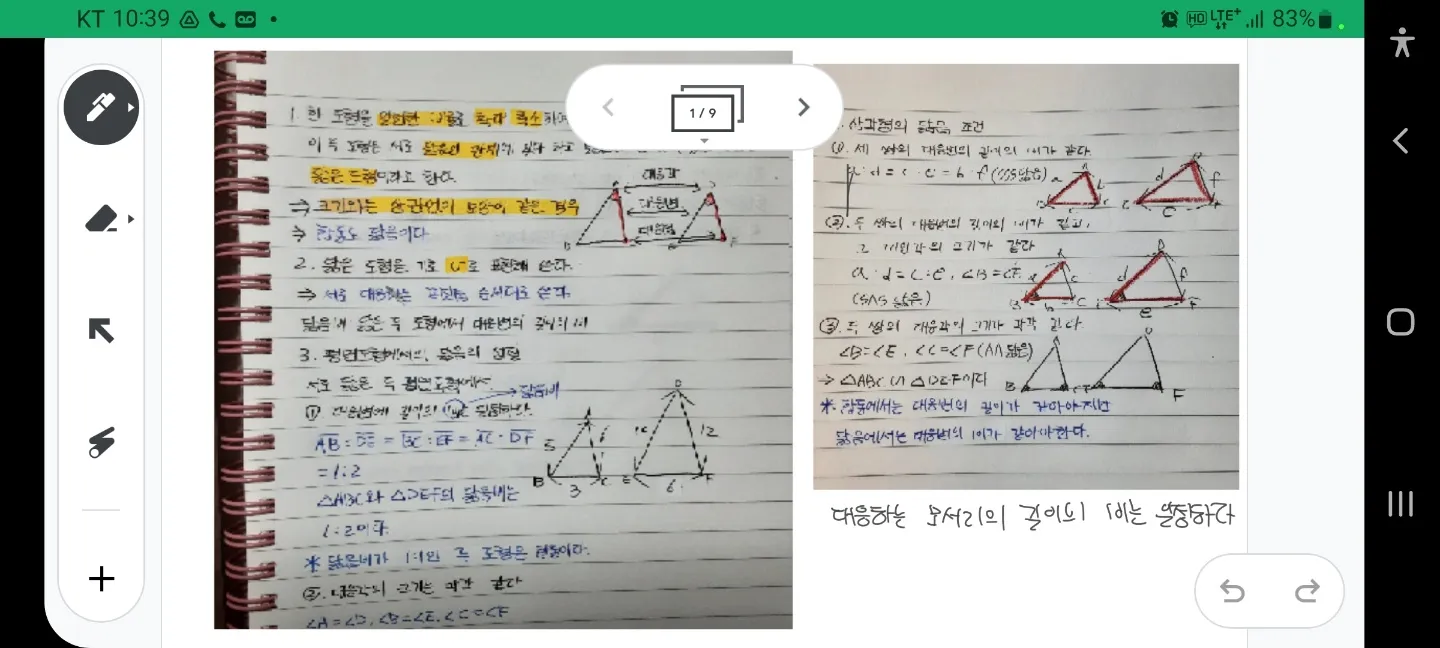 KT 10:39
HD LTE+ 83%
1/9
1. 한 도형을 일정한 비율로 확대 축소하여
이 두 도형은 서로 닮음인 관계에 있다 하고
닮은 도형이라고 한다.
대응각
⇒ 크기와는 상관없이 모양이 같은 경우
대응변
⇒ 합동도 닮음이다
대응점
2. 닮은 도형을 기호 ∽로 표현해 쓴다.
⇒ 서로 대응하는 꼭짓점 순서대로 쓴다.
닮음비 닮은 두 도형에서 대응변의 길이의 비
3. 평면도형에서의 닮음의 성질
서로 닮은 두 평면도형에서
→ 닮음비
① 대응변에 길이의 비는 일정하다.
AB : DE = BC : EF = AC : DF
= 1:2
△ABC와 △DEF의 닮음비는
1:2이다.
5 B 3 C
D 12 E 6 F
* 닮음비가 1:1인 두 도형은 합동이다.
②. 대응각의 크기는 각각 같다
∠A=∠D, ∠B=∠E, ∠C=∠F
삼각형의 닮음 조건
①. 세 쌍의 대응변의 길이의 비가 같다
a:d = c:e = b:f (SSS닮음)
②. 두 쌍의 대응변의 길이의 비가 같고,
그 끼인각의 크기가 같다
a:d = c:e, ∠B=∠E
(SAS 닮음)
③. 두 쌍의 대응각의 크기가 각각 같다.
∠B=∠E, ∠C=∠F (AA닮음)
→ △ABC ∽ △DEF이다
*. 합동에서는 대응변의 길이가 같아야지만
닮음에서는 대응변의 비가 같아야한다.
대응하는 모서리의 길이의 비는 일정하다